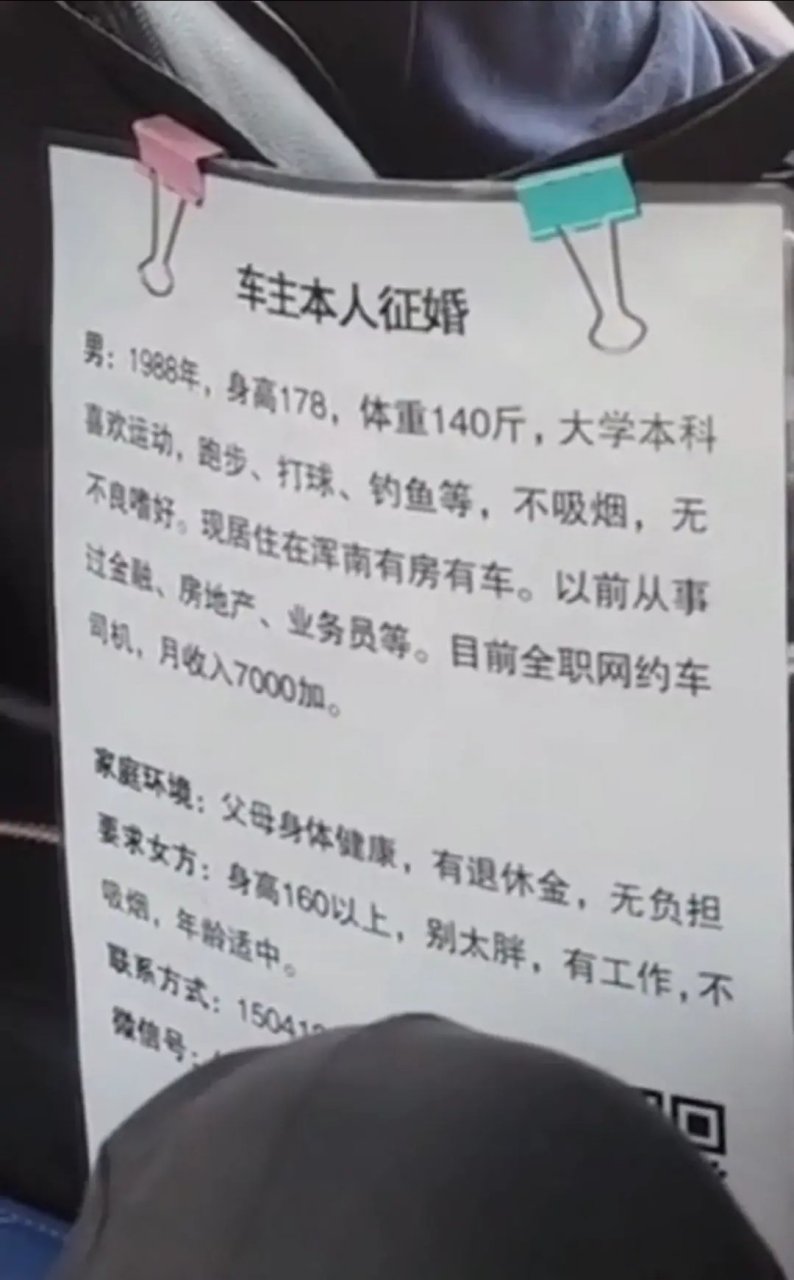 车主本人征婚
男：1988年，身高178，体重140斤，大学本科
喜欢运动，跑步、打球、钓鱼等，不吸烟，无
不良嗜好。现居住在浑南有房有车。以前从事
过金融、房地产、业务员等。目前全职网约车
司机，月收入7000加。
家庭环境：父母身体健康，有退休金，无负担
要求女方：身高160以上，别太胖，有工作，不
吸烟，年龄适中。
联系方式：15041
微信号：